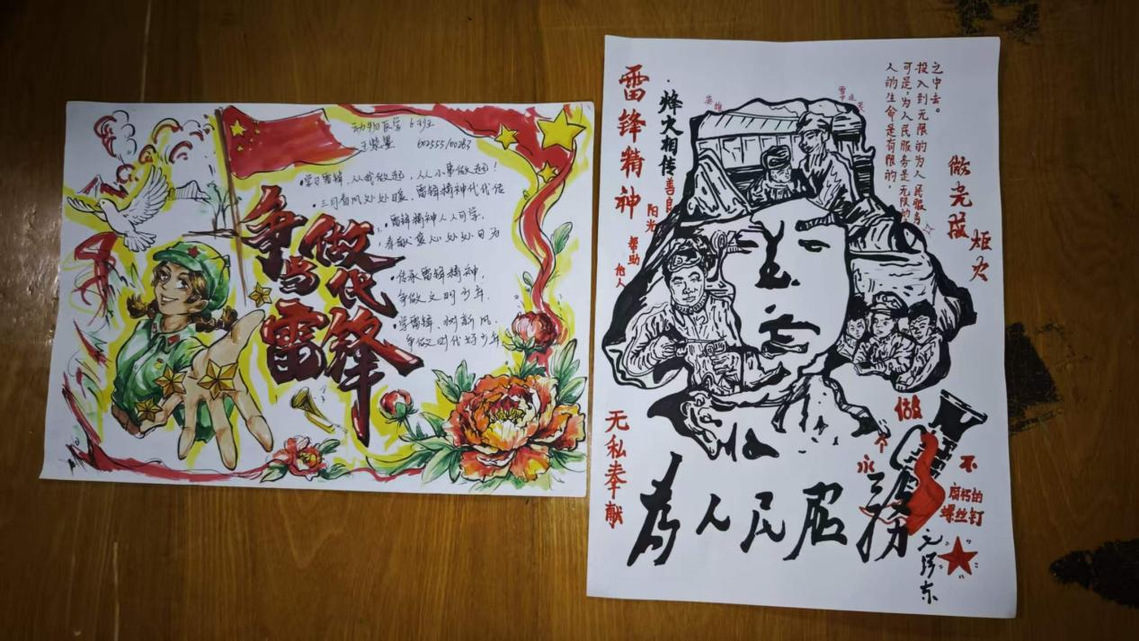 动物医学6班
602555/00283
•学习雷锋，从我做起，从小事做起！
•三月春风处处暖，雷锋精神代代传
•雷锋精神人人可学，
奉献爱心处处可为
•传承雷锋精神，
争做文明少年。
•学雷锋，树新风，
争做时代好少年
争做
当代
雷锋
雷锋精神
烽火相传
善良
阳光
帮助他人
英雄
人的生命是有限的，
可是，为人民服务是无限的
投入到无限的为人民服务
之中去。
做光成炬火
无私奉献
做
永
不
腐朽的
螺丝钉
为人民服務
毛泽东